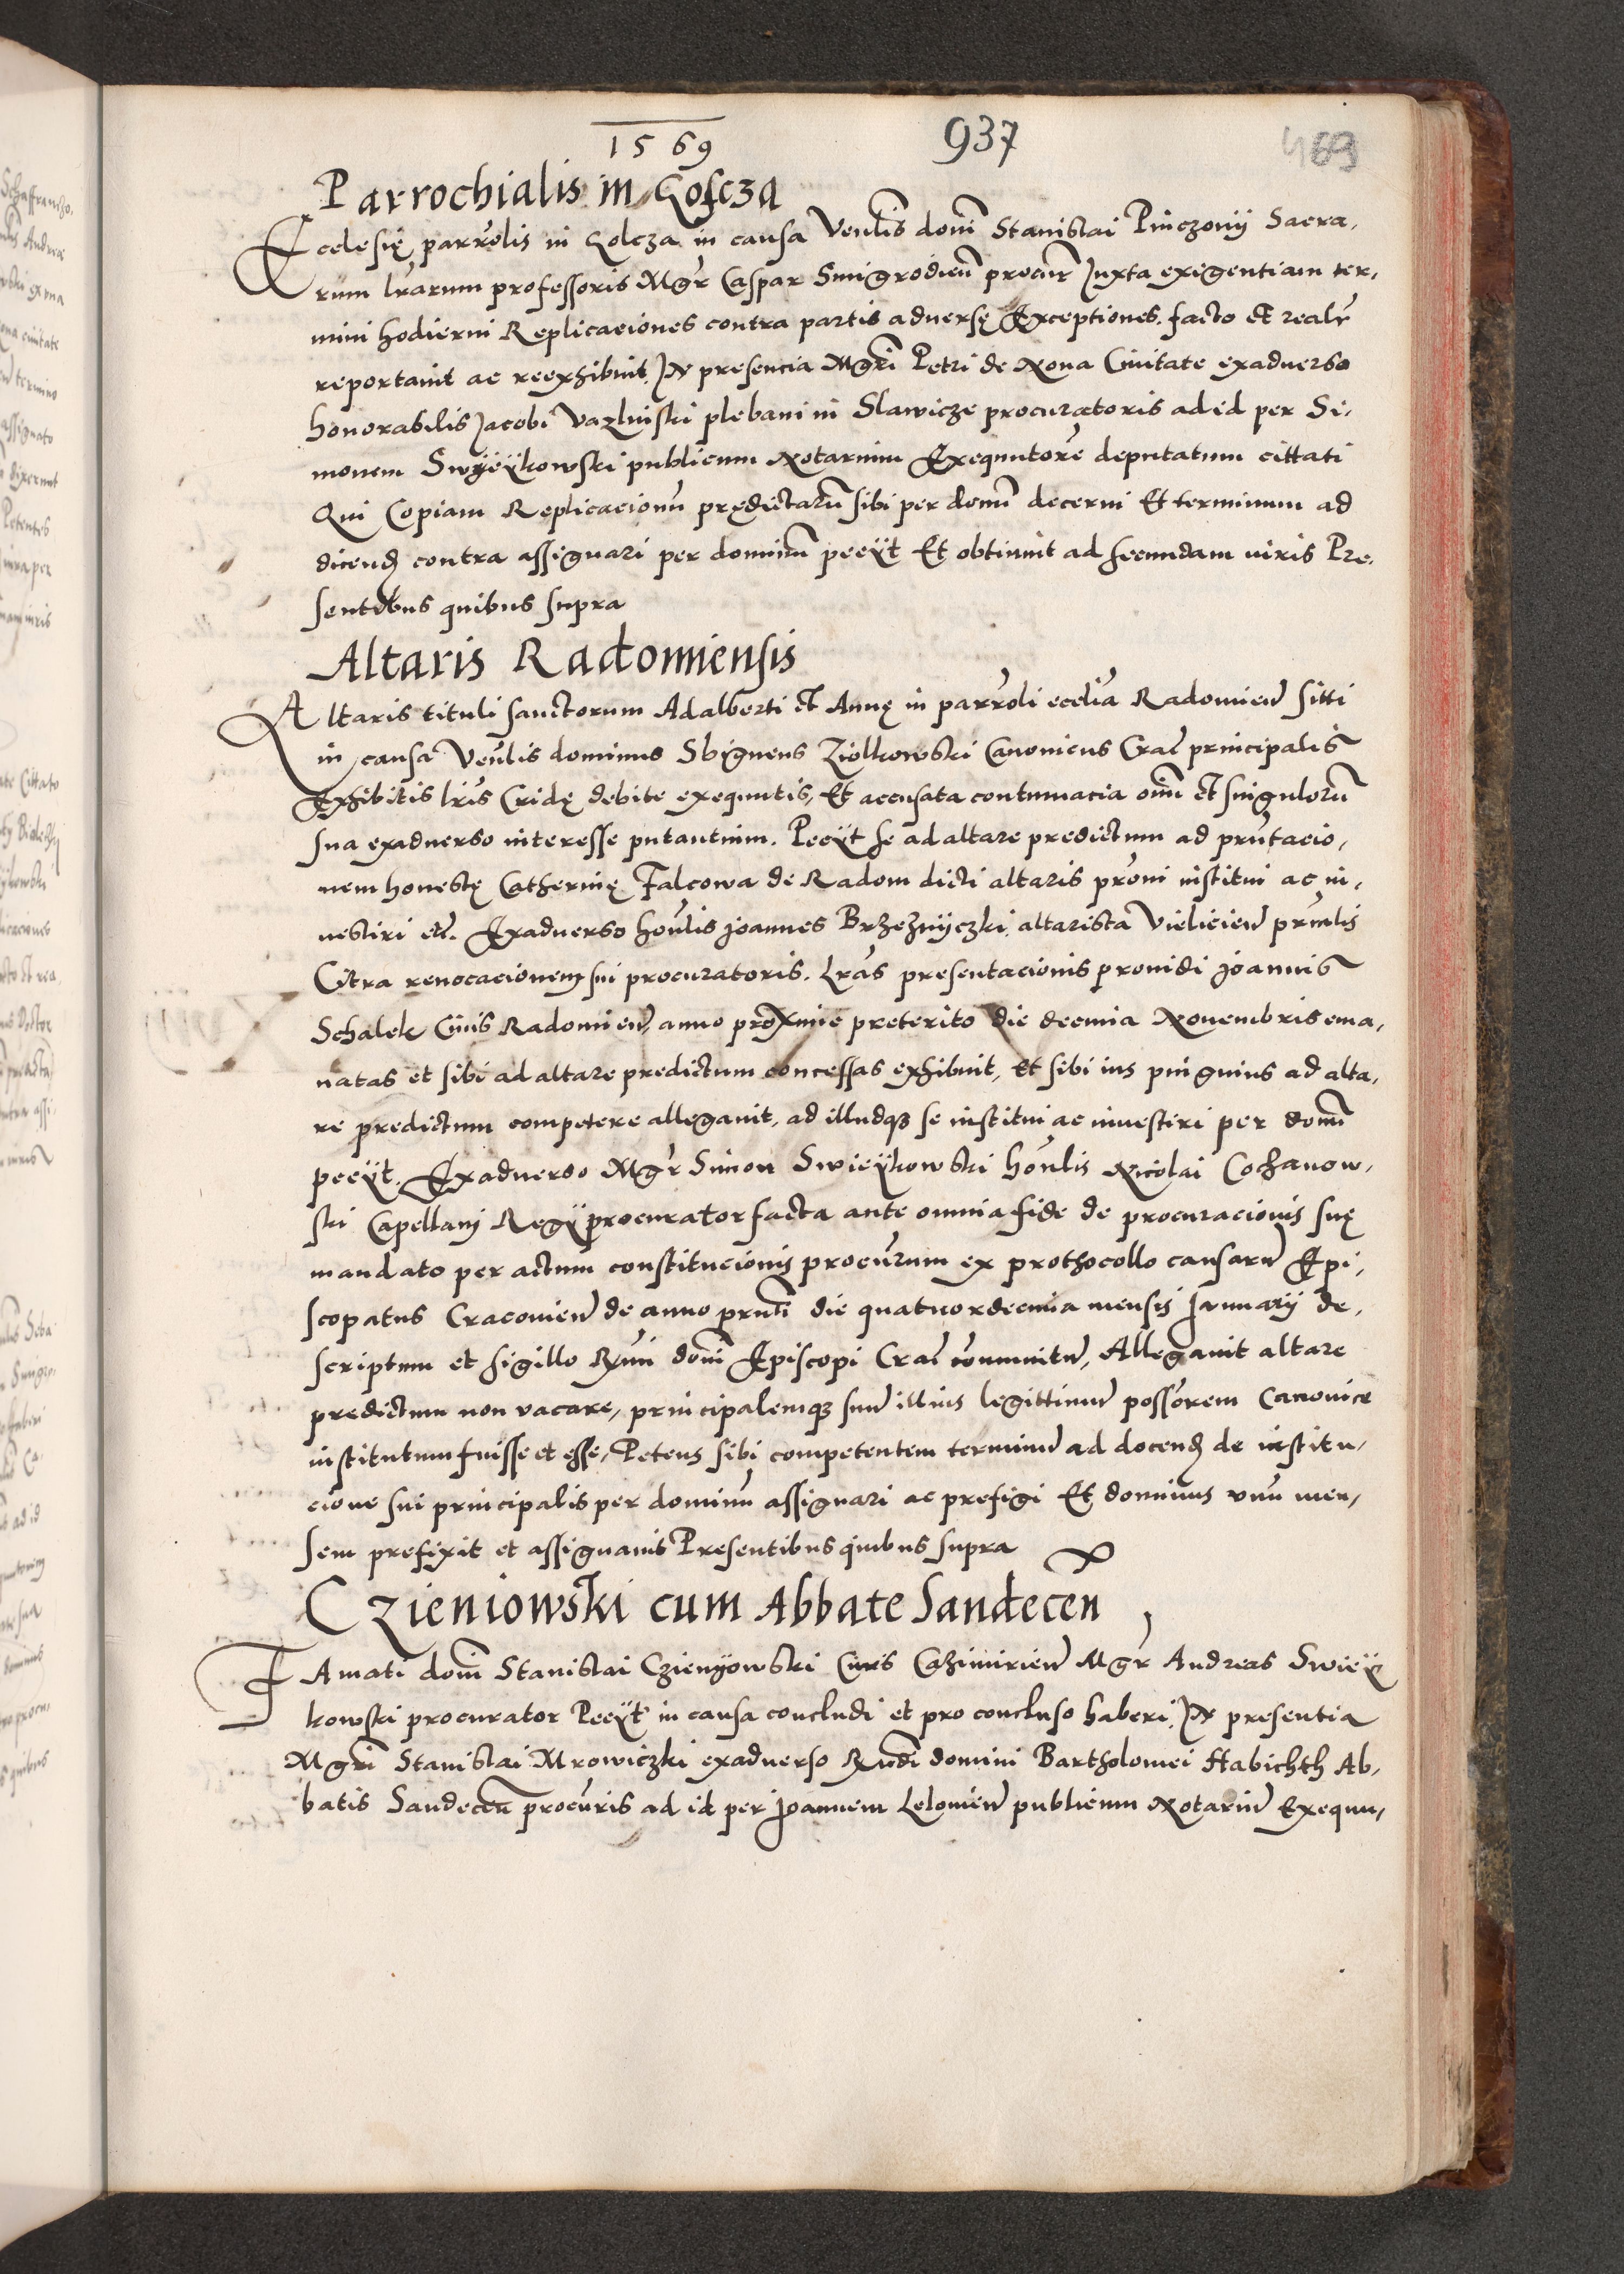 1569
937
469
Parrochialis in Golcza
Ecclesię parrolis in Golcza in causa Venlis domi Stanislai Pinczonij Sacra,
rum lrarum professoris Mgr Caspar Smigrodien procur Juxta exigentiam ter,
mini hodierni Replicaciones contra partis aduersę Exceptiones. facto et realr
reportauit ac reexhibuit, In presencia Mgri Petri de Noua Ciuitate exaduerso
honorabilis Jacobi Vazlinski plebani in Slawicze procuratoris ad id per Si,
monem Swyeykowski publicum Notarium Exequutore deputatum cittati
Qui Copiam Replicacionu prędictaru sibi per domu decerni Et terminum ad
dicend contra assignari per dominu peeyt Et obtinuit ad secundam iuris Pre,
sentibus quibus supra
Altaris Radomiensis
Altaris tituli sanctorum Adalberti et Annę in parroli ecclia Radomien sitti
in causa Venlis dominus Sbigneus Ziolkowski Canonicus Crac principalis
Exhibitis lris Cridę debite exequutis, Et accusata contumacia oniu et singuloru
sua exaduerso interesse putantium. Peeyt se ad altare predictum ad prntacio,
nem honestę Catherinę Falcowa de Radom dicti altaris proni institui ac in,
uestiri etc. Exaduerso honlis Joannes Brzeznyczki altarista Vielicien prnalis
Citra reuocacionem sui procuratoris. Lras presentacionis prouidi Joannis
Schalek Ciuis Radomien, anno proxime preterito die decima Nouembris ema,
natas et sibi ad altare predictum concessas exhibuit, Et sibi ius pinguius ad alta,
re predictum competere allegauit, ad illudq3 se institui ac inuestiri per domi
peeyt. Exaduerso Mgr Simon Swieykowski honlis Nicolai Cochanow,
ski Capellanj Regij procurator facta ante omnia fide de procuracionis suę
mandato per actum constitucionis procurum ex prothocollo causaru Epi,
scopatus Cracouien de anno prnti die quatuordecima mensis Januarij de,
scriptum et sigillo Rmi domi Episcopi Crac comunitu, Allegauit altare
predictum non vacare, principalemq3 suu illius legittimu possorem Canonice
institutum fuisse et esse, Petens sibi competentem terminu ad docend de institu,
cione sui principalis per dominu assignari ac prefigi Et dominus vnu men,
sem prefixit et assignauit Presentibus quibus supra
Czieniowski cum Abbate Sandecen
Famati domi Stanislai Czienyowski Ciuis Cazimirien Mgr Andreas Swiey
kowski procurator Peeyt in causa concludi et pro concluso haberi, In presentia
Mgri Stanislai Mrowiczki exaduerso Rndi domini Bartholomei Habichth Ab,
batis Sandecen procuris ad id per Joannem Lelouien publicum Notariu Exequu,